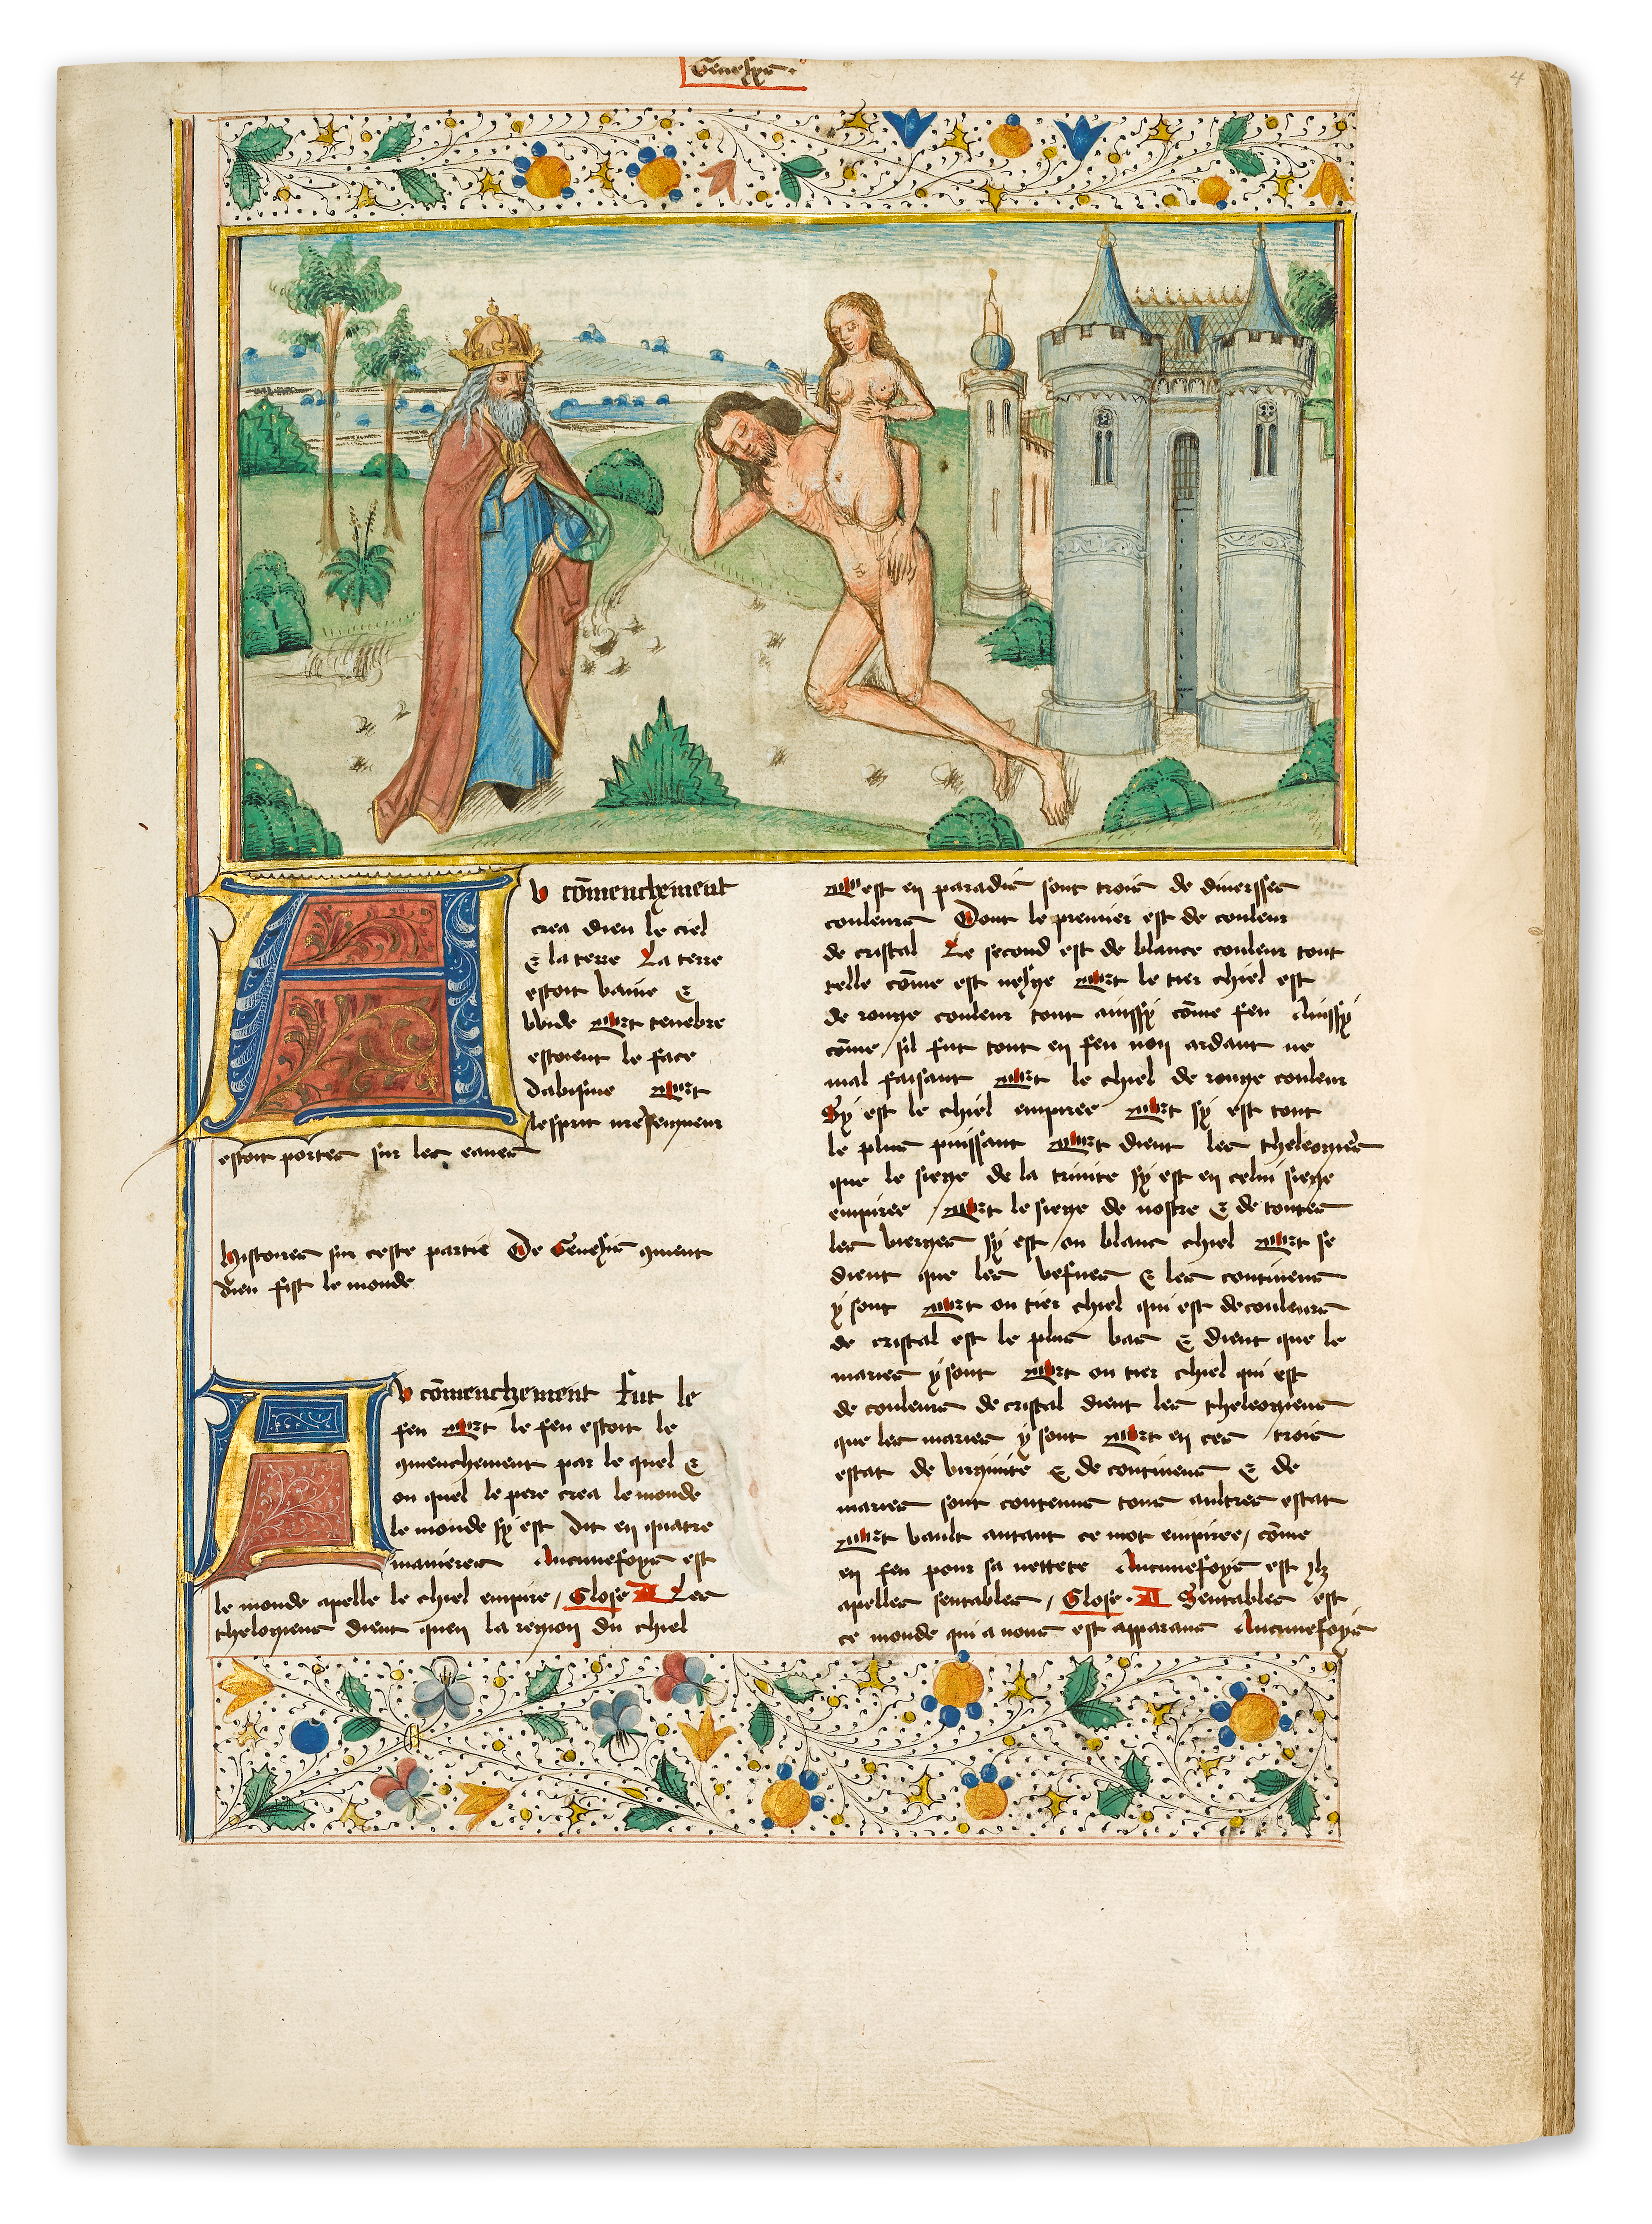 Genesys
4
Au cōmenchement
crea dieu le ciel
& la terre La terre
estoit vaine &
wide Et tenebre
estoient le face
dabisme Et
lesprit nr̄e seigneur
estoit portes sur les eaues
Histoires sur ceste partie De Genesis 9ment
dieu fist le monde
Au cōmenchement fut le
feu Et le feu estoit le
9menchement par le quel &
ou quel le pere crea le monde
le monde sy est dit en quatre
manieres Aucunefoys est
le monde apelle le chiel empire / Glose A Les
thelogiens dient quen la region du chiel
est en paradis sont trois de diversses
couleurs Dont le premier est de couleur
de cristal Le second est de blance couleur tout
telle cōme est nesge Et le tier chiel est
de rouge couleur tout aussy cōme feu Aussy
cōme sil fut tout en feu non ardant ne
mal faisant Et le chiel de rouge couleur
Sy est le chiel empiree Et sy est tout
le plus puissant Et dient les theleogiens
que le siege de la trinite sy est en celui siege
empiree / Et le siege de nostre & de toutes
les vierges sy est ou blanc chiel Et se
dient que les vesves & les continens
y sont Et ou tier chiel qui est de couleurs
de cristal est le plus bas & dient que le
maries y sont Et ou tier chiel qui est
de couleurs de cristal dient les theleogiens
que les maries y sont Et en ces trois
estat de virginite & de continens & de
maries sont contenus tous aultres estat
Et vault autant ce mot empiree / cōme
en feu pour sa nettete Aucunefoys est ilz
apelles sentables / Glose · A Sentables est
ce monde qui a nous est apparans Aucunefoys